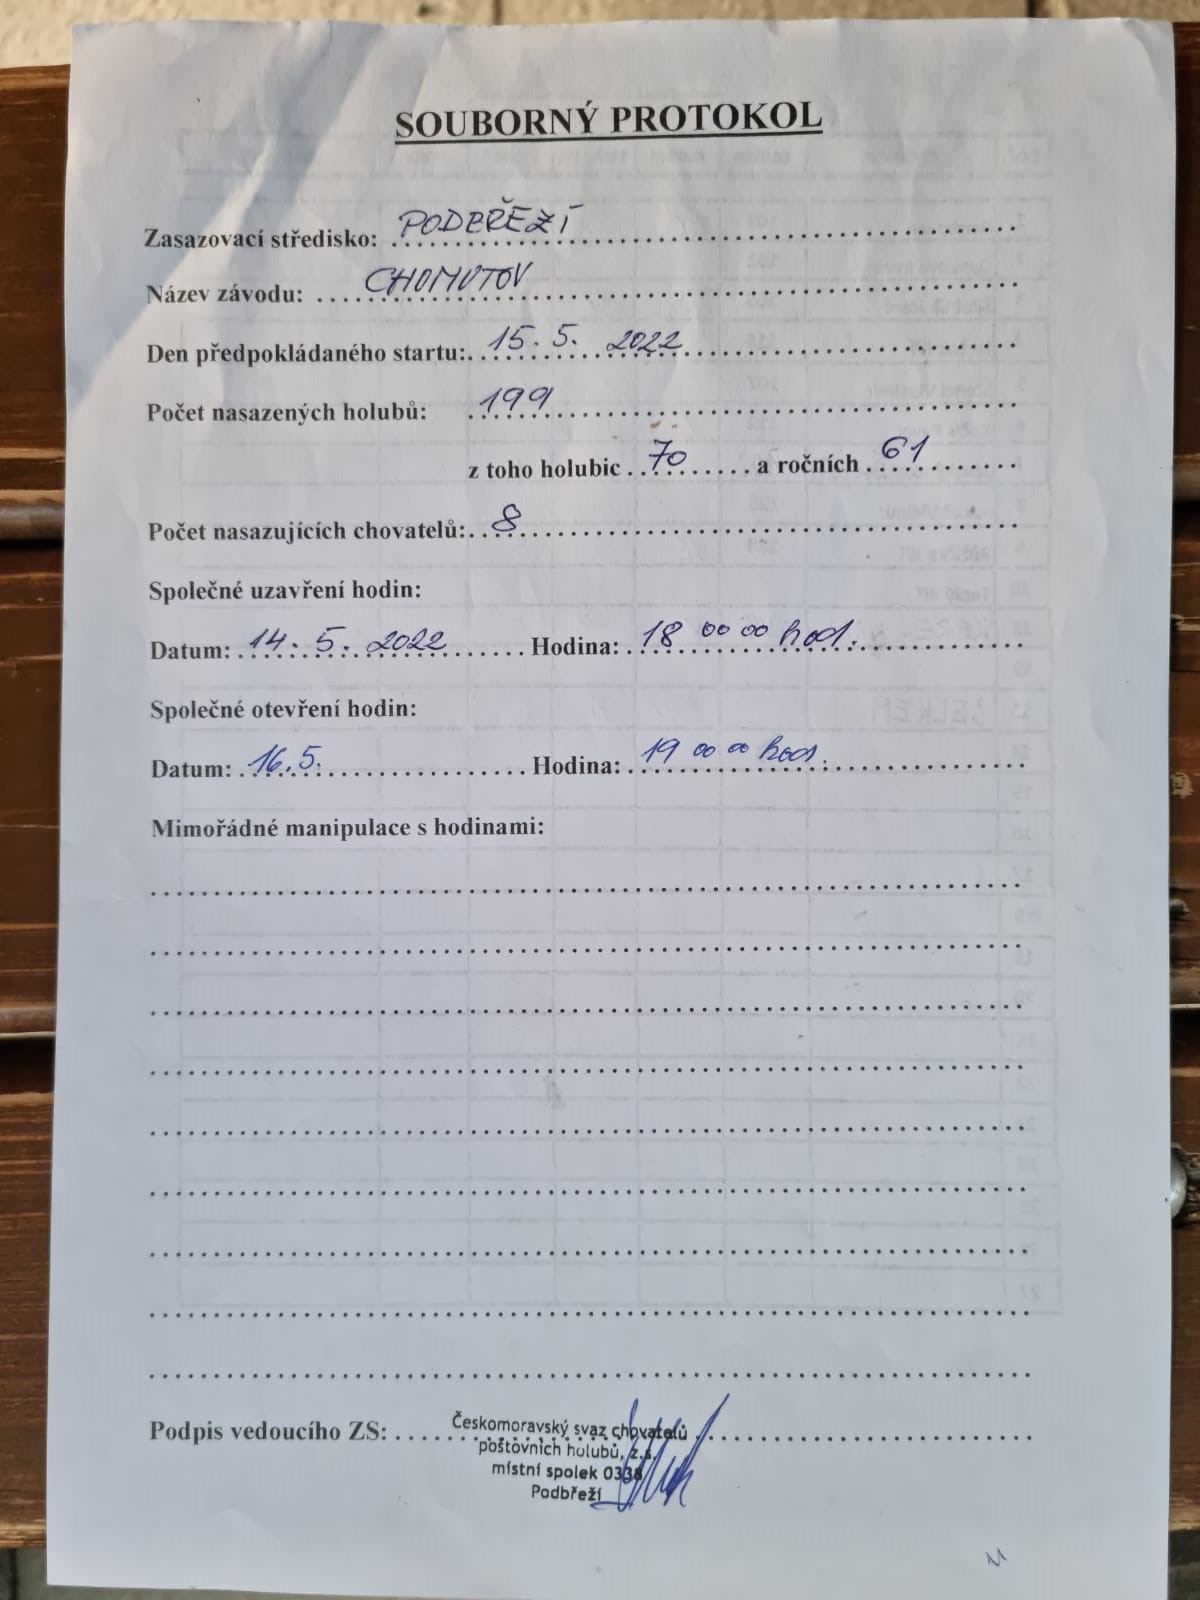 SOUBORNÝ PROTOKOL
Zasazovací středisko: PODBŘEZÍ
Název závodu: CHOMUTOV
Den předpokládaného startu: 15. 5. 2022
Počet nasazených holubů: 199
z toho holubic 70 a ročních 61
Počet nasazujících chovatelů: 8
Společné uzavření hodin:
Datum: 14. 5. 2022 Hodina: 18 00 00 hod.
Společné otevření hodin:
Datum: 16.5. Hodina: 19 00 00 hod.
Mimořádné manipulace s hodinami:
Podpis vedoucího ZS:
Českomoravský svaz chovatelů
poštovních holubů, z.s.
místní spolek 0338
Podbřeží